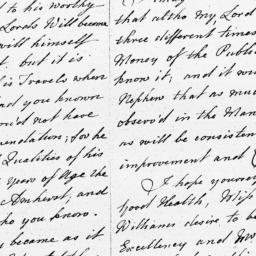 to his worthy
Lords Will become
will himself
but it is
his Travels when
had you known
ou'd not have
mendation; for he
Qualities of his
Years of Age the
Amherst, and
who you know.
y became as it
that altho my Lord
three different times
Money of the Public
know it; and it wou
Nephew that as muc
observ'd in the Man
as will be consisten
improvement and
I hope yourse
good Health, Miss
Williams desire to be
Excellency and Mrs